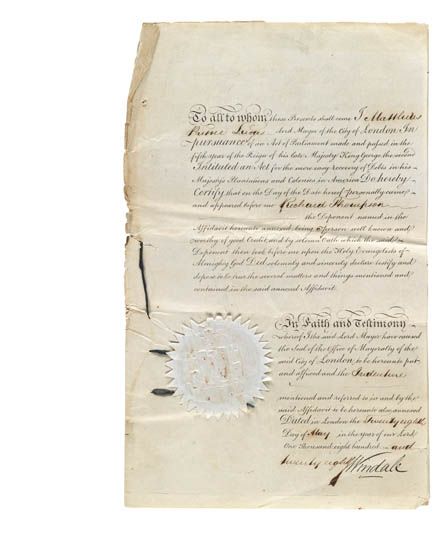 To all to whom these Presents shall come I Matthias
Prime Lucas Lord Mayor of the City of London In
pursuance of an Act of Parliament made and passed in the
fifth Year of the Reign of his late Majesty King George the second
Intituled an Act for the more easy recovery of Debts in his
Majestys Plantations and Colonies in America Do hereby
Certify that on the Day of the Date hereof personally came
and appeared before me Richard Thompson
the Deponent named in the
Affidavit hereunto annexed being a Person well known and
worthy of good Credit and by solemn Oath which the said
Deponent then took before me upon the Holy Evangelists of
Almighty God Did solemnly and sincerely declare testify and
depose to be true the several matters and things mentioned and
contained in the said annexed Affidavit
In Faith and Testimony
whereof I the said Lord Mayor have caused
the Seal of the Office of Mayoralty of the
said City of London to be hereunto put
and affixed and the Indenture
mentioned and referred to in and by the
said Affidavit to be hereunto also annexed
Dated in London the Twenty eighth
Day of May in the year of our Lord
One Thousand eight hundred and
twenty eight